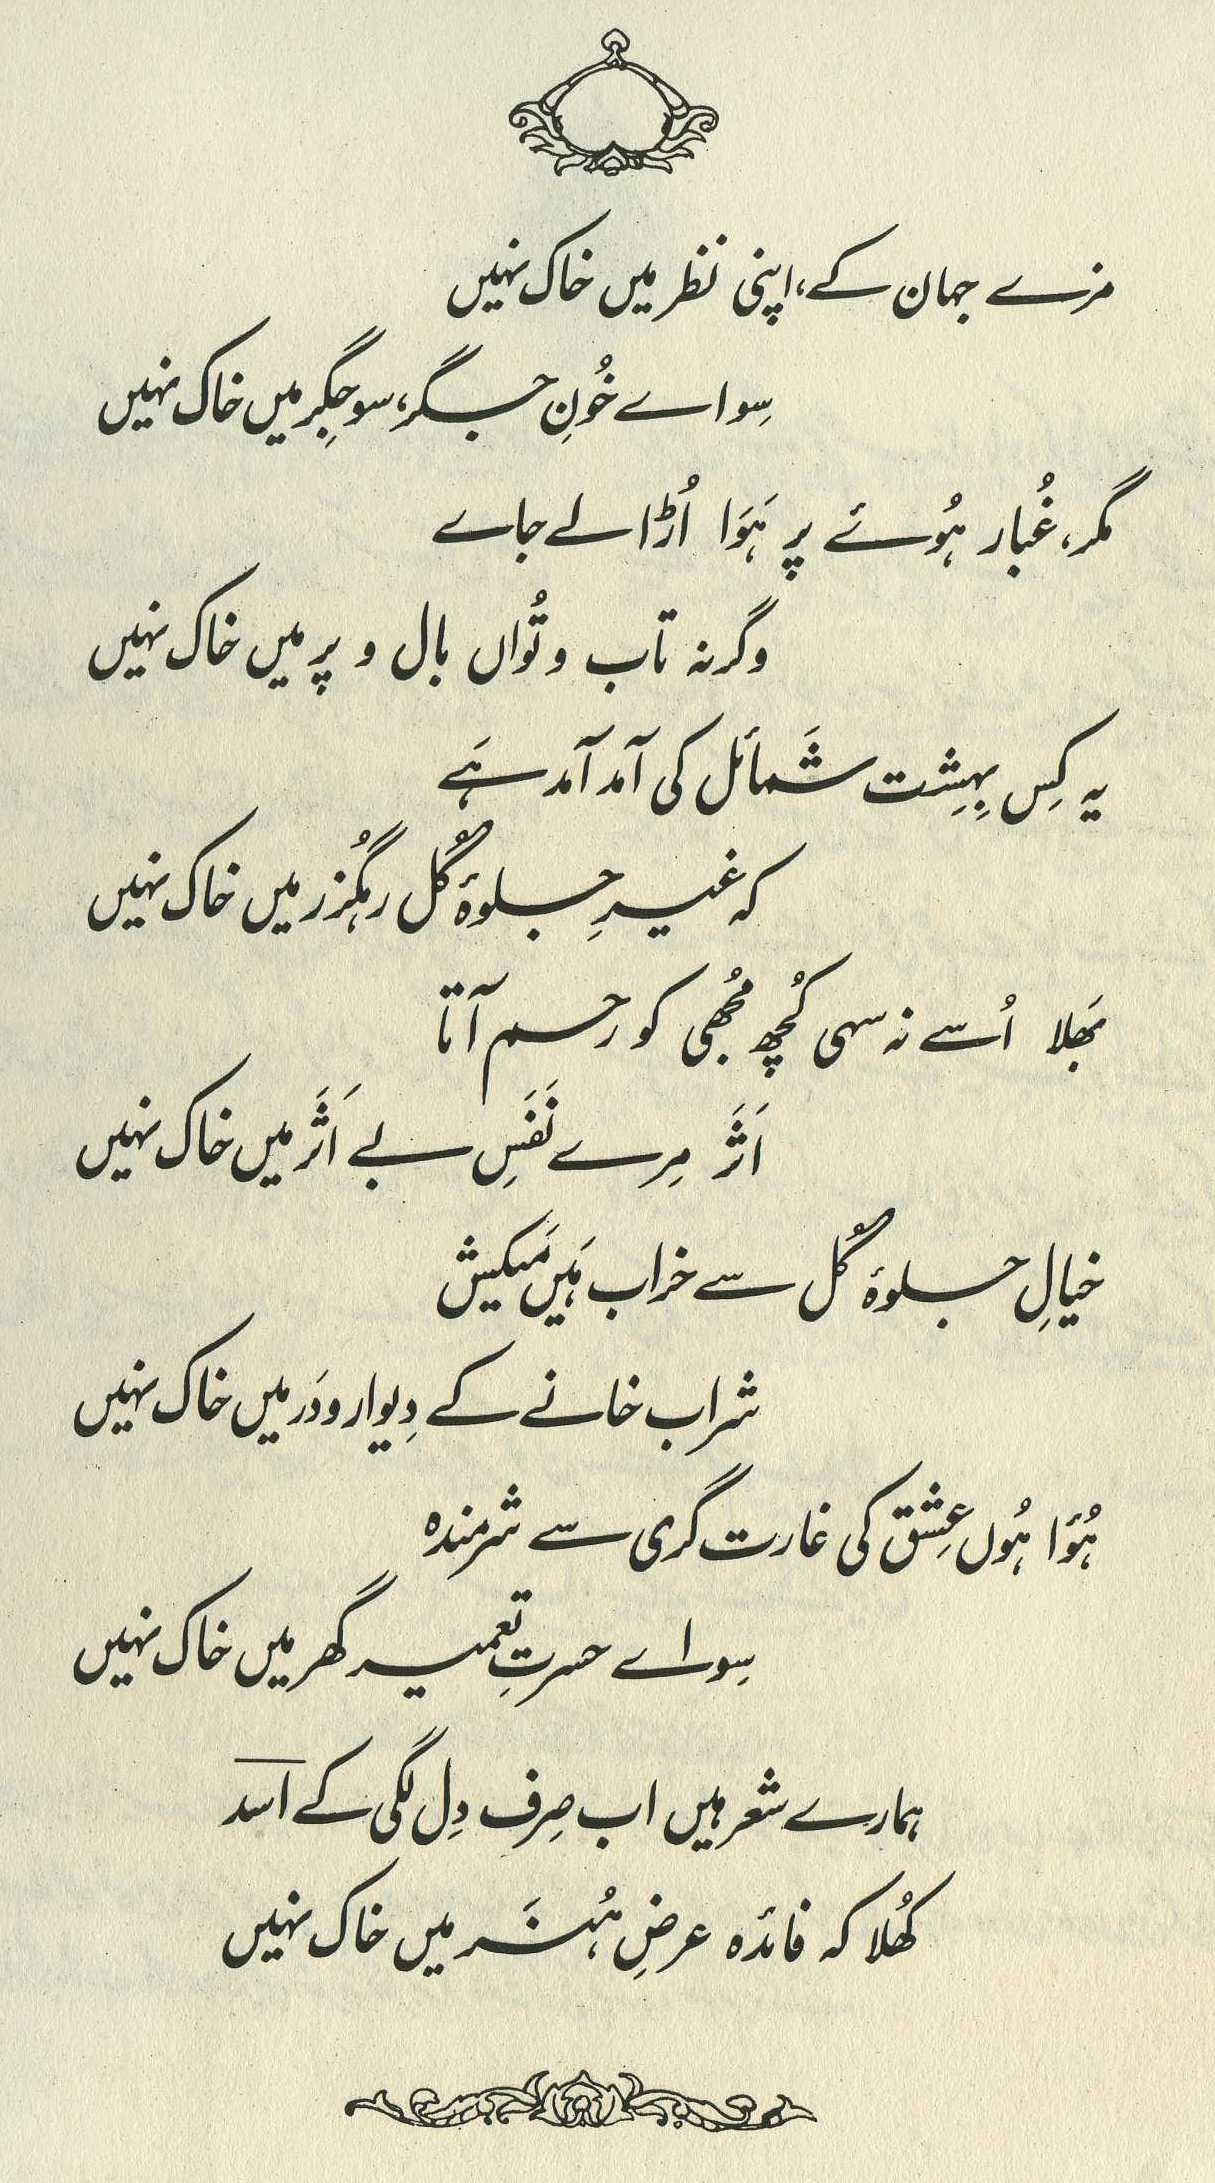 مزے جہان کے، اپنی نظر میں خاک نہیں
سِواے خُونِ جگر، سو جِگر میں خاک نہیں
مگر، غُبار ہُوئے پر ہَوَا اُڑا لے جاے
وگرنہ تاب و تُواں بال و پر میں خاک نہیں
یہ کِس بِہِشت شَمائل کی آمد آمد ہَے
کہ غیرِ جلوۂ گُل رہگُزر میں خاک نہیں
بَھلا اُسے نہ سہی کُچھ مُجھی کو رحم آتا
اَثَر مِرے نَفَسِ بے اَثَر میں خاک نہیں
خیالِ جلوۂ گُل سے خراب ہَیں مَیکش
شراب خانے کے دِیوار و دَر میں خاک نہیں
ہُوَا ہُوں عِشق کی غارت گری سے شرمندہ
سِواے حسرتِ تعمیر گھر میں خاک نہیں
ہمارے شعر ہیں اب صِرف دِل لگی کے اسدؔ
کُھلا کہ فائدہ عرضِ ہُنَر میں خاک نہیں